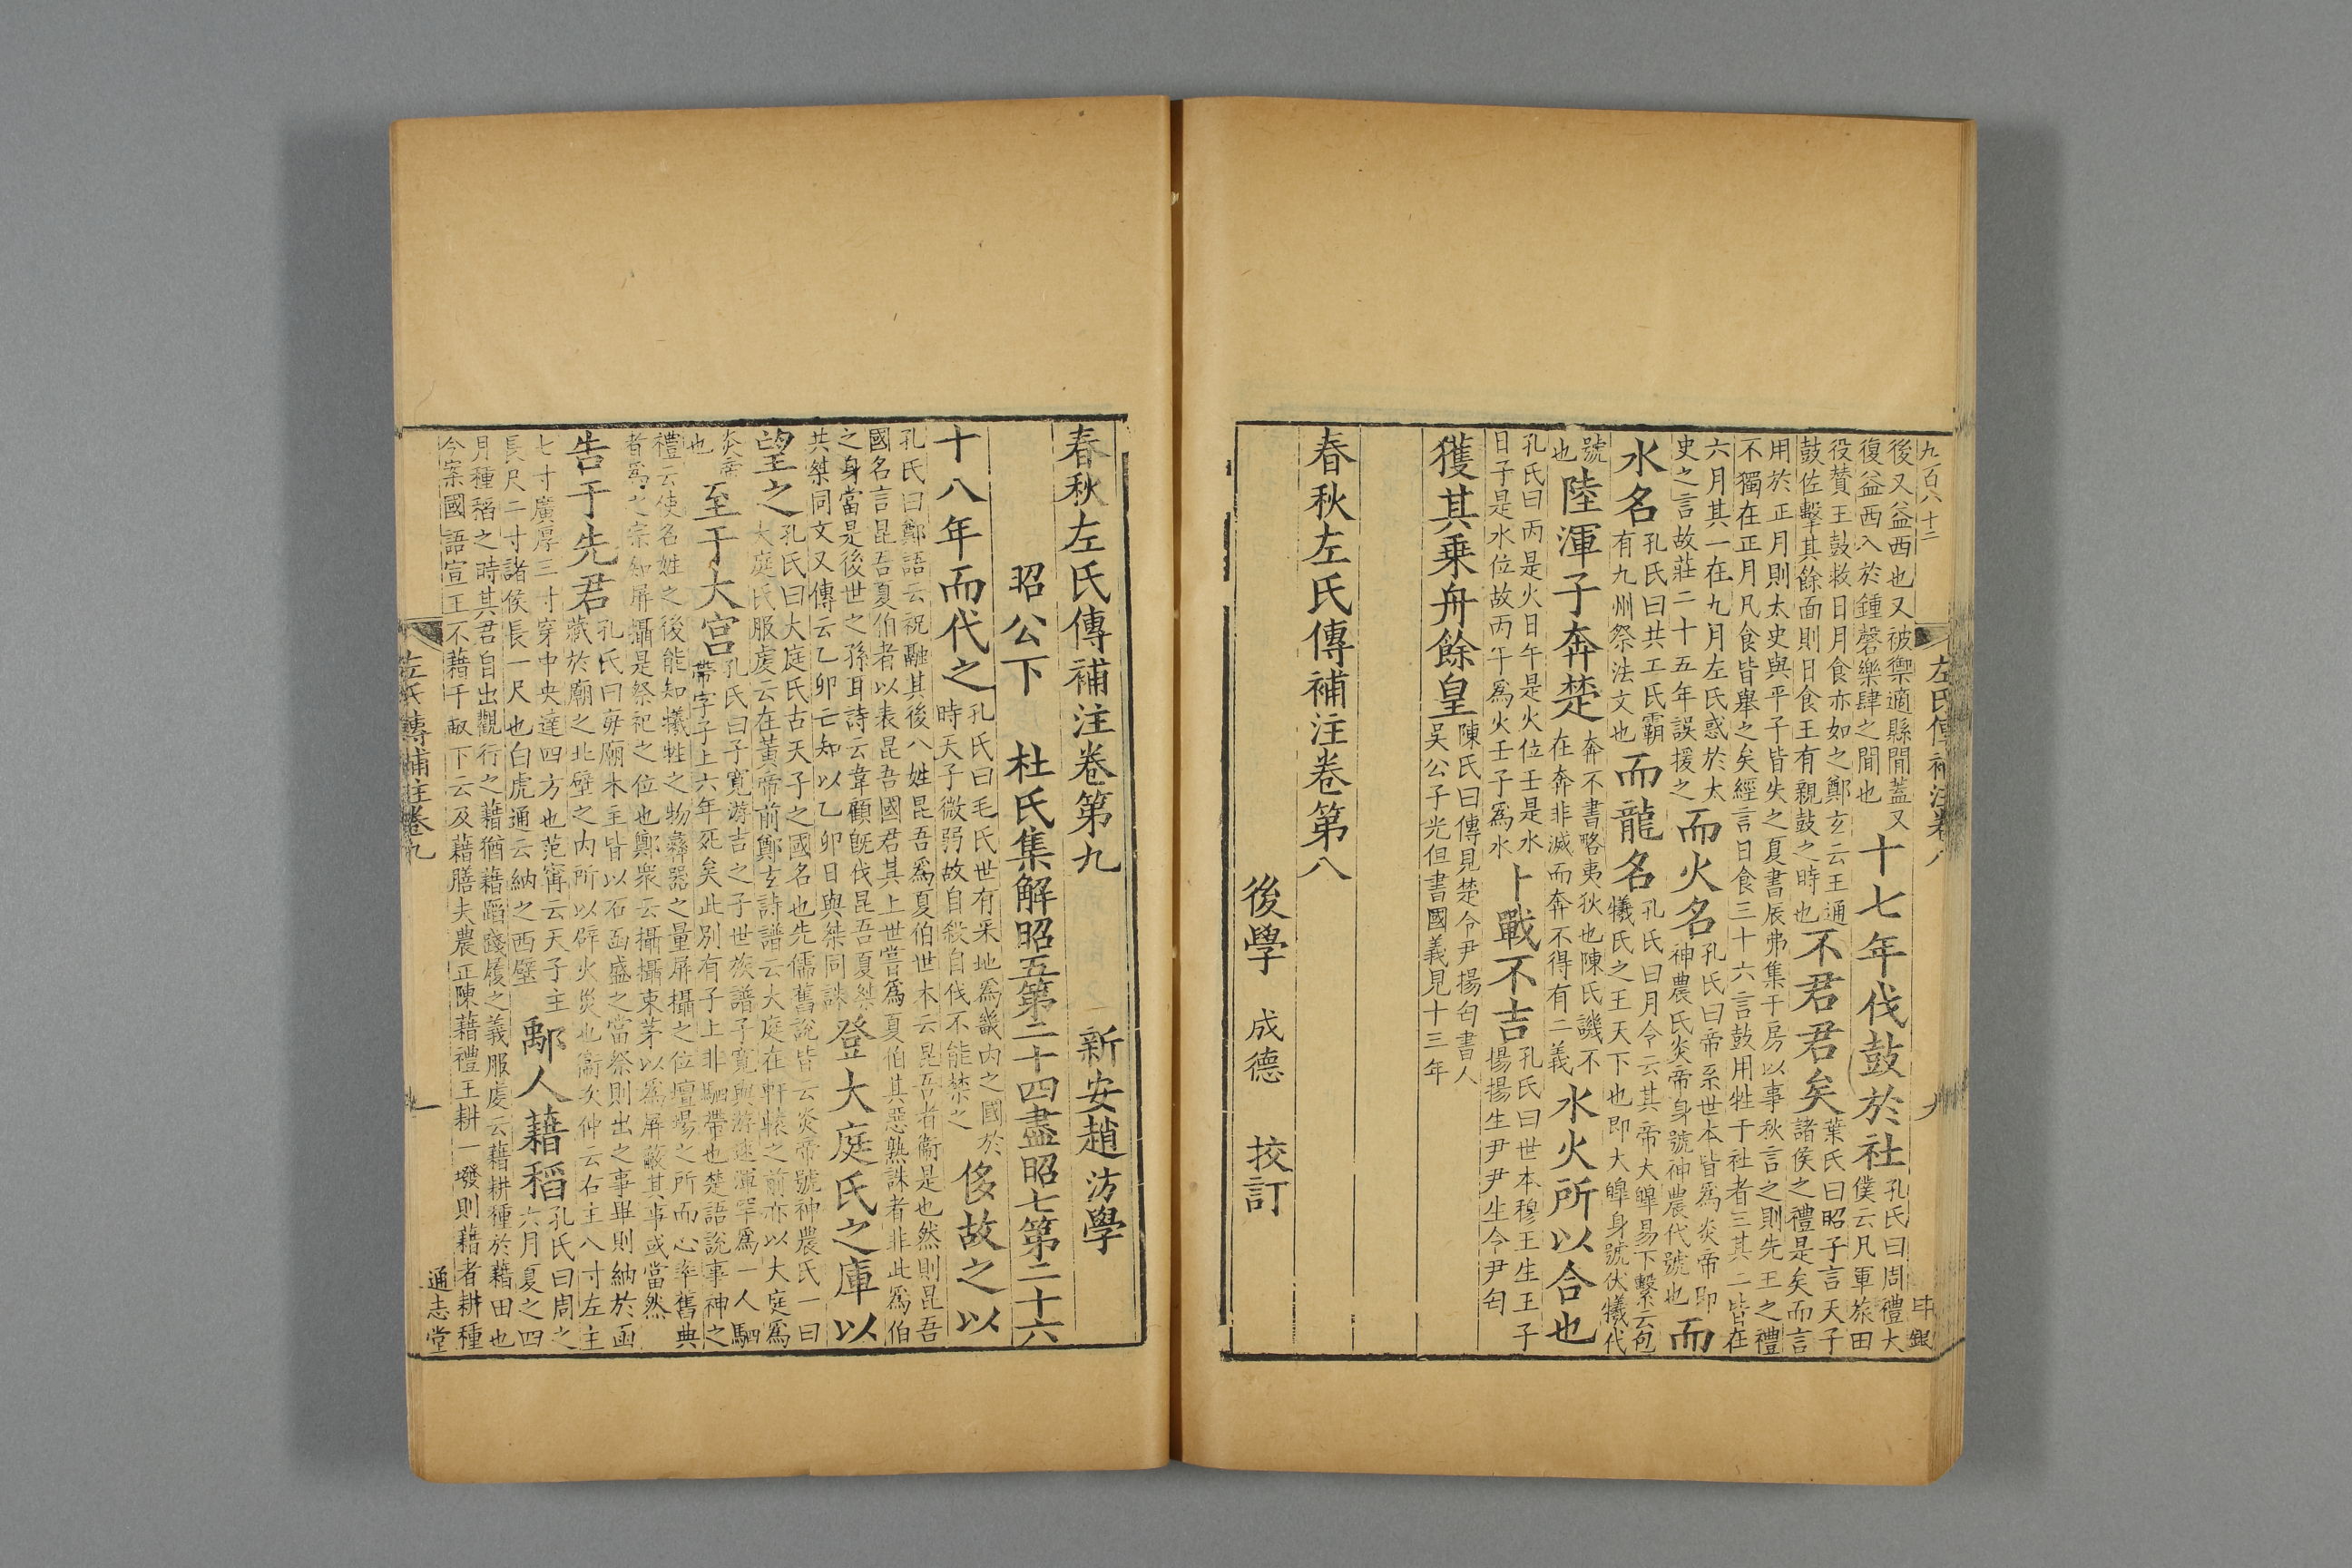 九百八十三
左氏傳補注卷八
九
後又益西也又被禦適縣間蓋又
復益西入於鍾磬樂肆之間也
十七年伐鼓於社
孔氏曰周禮大
僕云凡軍旅田
役贊王鼓救日月食亦如之鄭玄云王通
鼓佐擊其餘面則日食王有親鼓之時也
不君君矣
葉氏曰昭子言天子
諸侯之禮是矣而言
用於正月則太史與平子皆失之夏書辰弗集于房以事秋言之則先王之禮
不獨在正月凡食皆舉之矣經言日食三十六言鼓用牲于社者三其二皆在
六月其一在九月左氏惑於太
史之言故莊二十五年誤援之
而火名
孔氏曰帝系世本皆爲炎帝即
神農氏炎帝身號神農代號也
而
水名
孔氏曰共工氏霸
有九州祭法文也
而龍名
孔氏曰月令云其帝大皥易下繫云包
犧氏之王天下也即大皥身號伏犧代
號
也
陸渾子奔楚
奔不書略夷狄也陳氏譏不
在奔非滅而奔不得有二義
水火所以合也
孔氏曰丙是火日午是火位壬是水
日子是水位故丙午爲火壬子爲水
卜戰不吉
孔氏曰世本穆王生王子
揚揚生尹尹生令尹匄
獲其乗舟餘皇
陳氏曰傳見楚令尹揚匄書人
吴公子光但書國義見十三年
春秋左氏傳補注卷第八
後學 成德 挍訂
春秋左氏傳補注卷第九
新安趙汸學
昭公下 杜氏集解昭五第二十四盡昭七第二十六
十八年而代之
孔氏曰毛氏世有采地爲畿内之國於
時天子微弱故自殺自伐不能禁之
侈故之以
孔氏曰鄭語云祝融其後八姓昆吾爲夏伯世本云昆吾者衞是也然則昆吾
國名言昆吾夏伯者以表昆吾國君其上世嘗爲夏伯其惡熟誅者非此爲伯
之身當是後世之孫耳詩云韋顧既伐昆吾夏桀
共桀同文又傳云乙卯亡知以乙卯日與桀同誅
登大庭氏之庫以
望之
孔氏曰大庭氏古天子之國名也先儒舊說皆云炎帝號神農氏一曰
大庭氏服虔云在黃帝前鄭玄詩譜云大庭在軒轅之前亦以大庭爲
炎帝
也
至于大宫
孔氏曰子寛游吉之子世族譜子寛與游速渾罕爲一人駟
帶字子上六年死矣此别有子上非駟帶也楚語說事神之
禮云使名姓之後能知犧牲之物彝器之量屏攝之位壇場之所而心率舊典
者爲之宗知屏攝是祭祀之位也鄭衆云攝攝束茅以爲屏蔽其事或當然
告于先君
孔氏曰每廟木主皆以石函盛之當祭則出之事畢則納於函
藏於廟之北壁之内所以辟火災也衞次仲云右主八寸左主
七寸廣厚三寸穿中央達四方也范甯云天子主
長尺二寸諸侯長一尺也白虎通云納之西壁
鄅人藉稻
孔氏曰周之
六月夏之四
月種稻之時其君自出觀行之藉猶藉蹈踐履之義服虔云藉耕種於藉田也
今案國語宣王不藉千畝下云及藉膳夫農正陳藉禮王耕一墢則藉者耕種
左氏傳補注卷九
一
通志堂